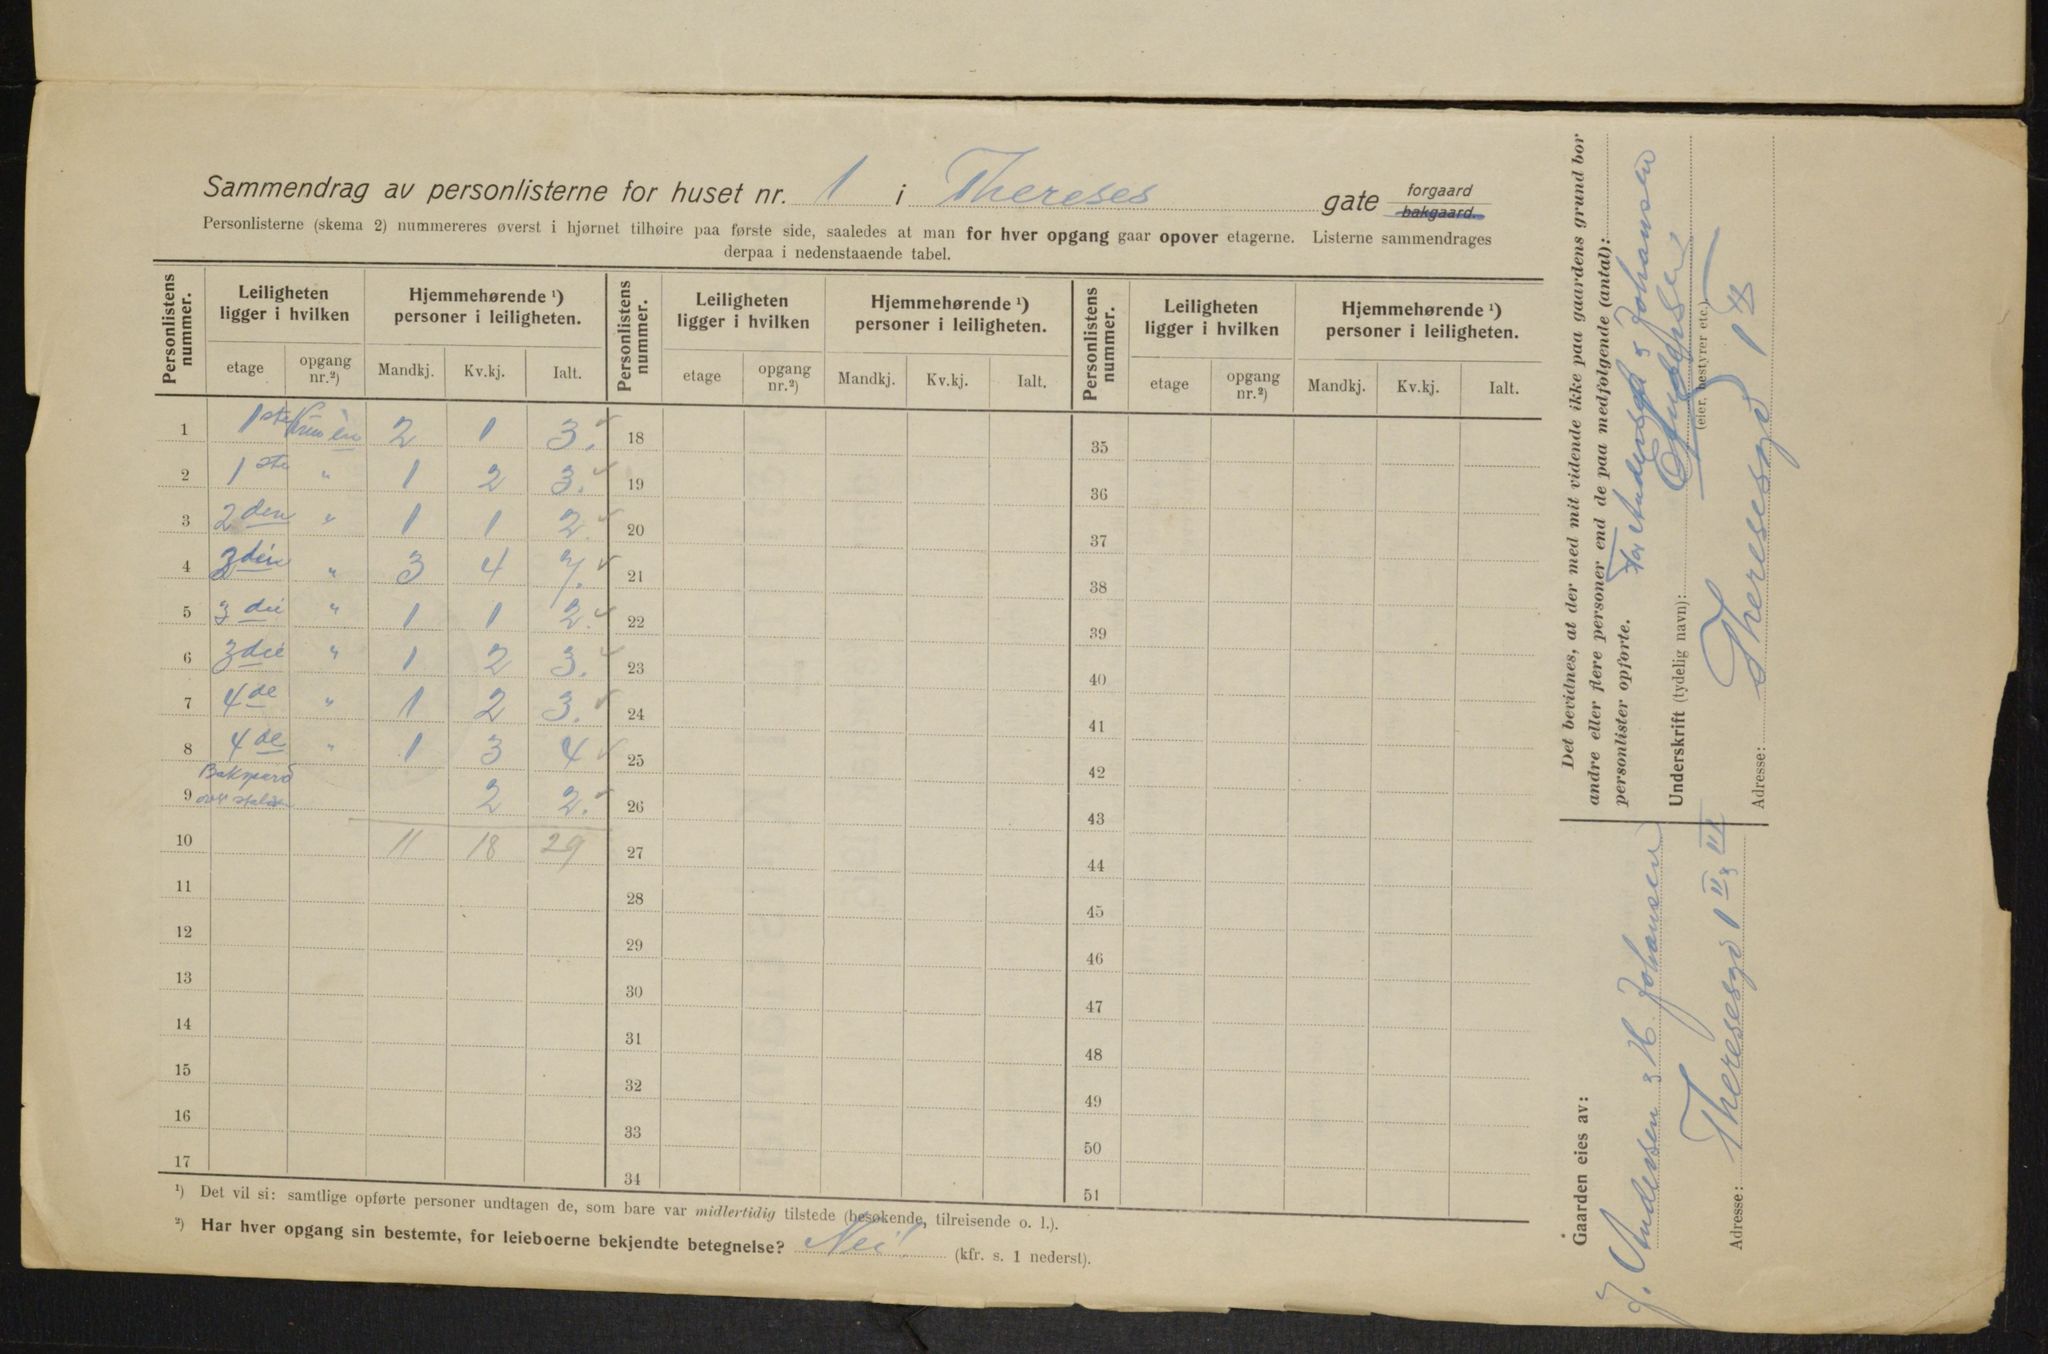 Sammendrag av personlisterne for huset nr. 1 i Thereses gate forgaard bakgaard.
Personlisterne (skema 2) nummereres øverst i hjørnet tilhøire paa første side, saaledes at man for hver opgang gaar opover etagerne. Listerne sammendrages
derpaa i nedenstaaende tabel.
Personlistens nummer. Leiligheten ligger i hvilken Hjemmehørende ¹) personer i leiligheten. Personlistens nummer. Leiligheten ligger i hvilken Hjemmehørende ¹) personer i leiligheten. Personlistens nummer. Leiligheten ligger i hvilken Hjemmehørende ¹) personer i leiligheten.
etage opgang nr.²) Mandkj. Kv.kj. Ialt. etage opgang nr.²) Mandkj. Kv.kj. Ialt. etage opgang nr.²) Mandkj. Kv.kj. Ialt.
1 1ste 2 1 3. 18 35
2 1ste " 1 2 3. 19 36
3 2den " 1 1 2. 20 37
4 3die " 3 4 7. 21 38
5 3die " 1 1 2. 22 39
6 3die " 1 2 3. 23 40
7 4de " 1 2 3. 24 41
8 4de " 1 3 4 25 42
9 Bakgaard over stalden 2 2. 26 43
10 11 18 29 27 44
11 28 45
12 29 46
13 30 47
14 31 48
15 32 49
16 33 50
17 34 51
¹) Det vil si: samtlige opførte personer undtagen de, som bare var midlertidig tilstede (besøkende, tilreisende o. l.).
²) Har hver opgang sin bestemte, for leieboerne bekjendte betegnelse? Nei! (kfr. s. 1 nederst).
Det bevidnes, at der med mit vidende ikke paa gaardens grund bor
andre eller flere personer end de paa medfølgende (antal):
personlister opførte. For Andersen & Johansen
Underskrift (tydelig navn):
(eier, bestyrer etc.)
Adresse: Theresesgd 1 II
Gaarden eies av:
J. Andersen & H. Johansen
Adresse: Theresesgd 1 II & III